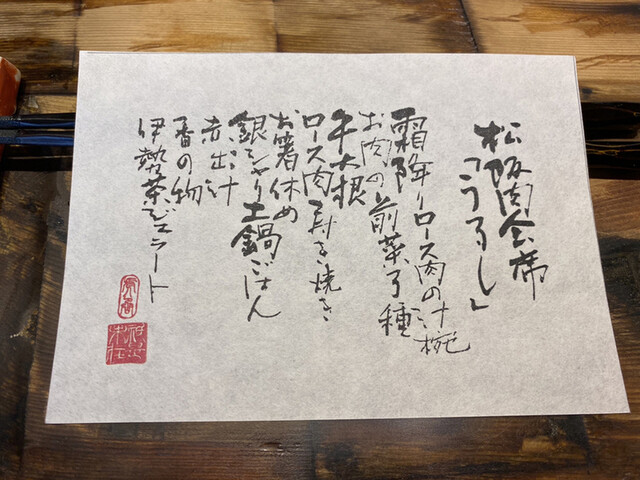 松阪肉会席
「うるし」
霜降りロース肉の汁椀
お肉の前菜5種
牛大根
ロース肉すき焼き
お箸休め
銀シャリ土鍋ごはん
赤出汁
香の物
伊勢茶ジェラート